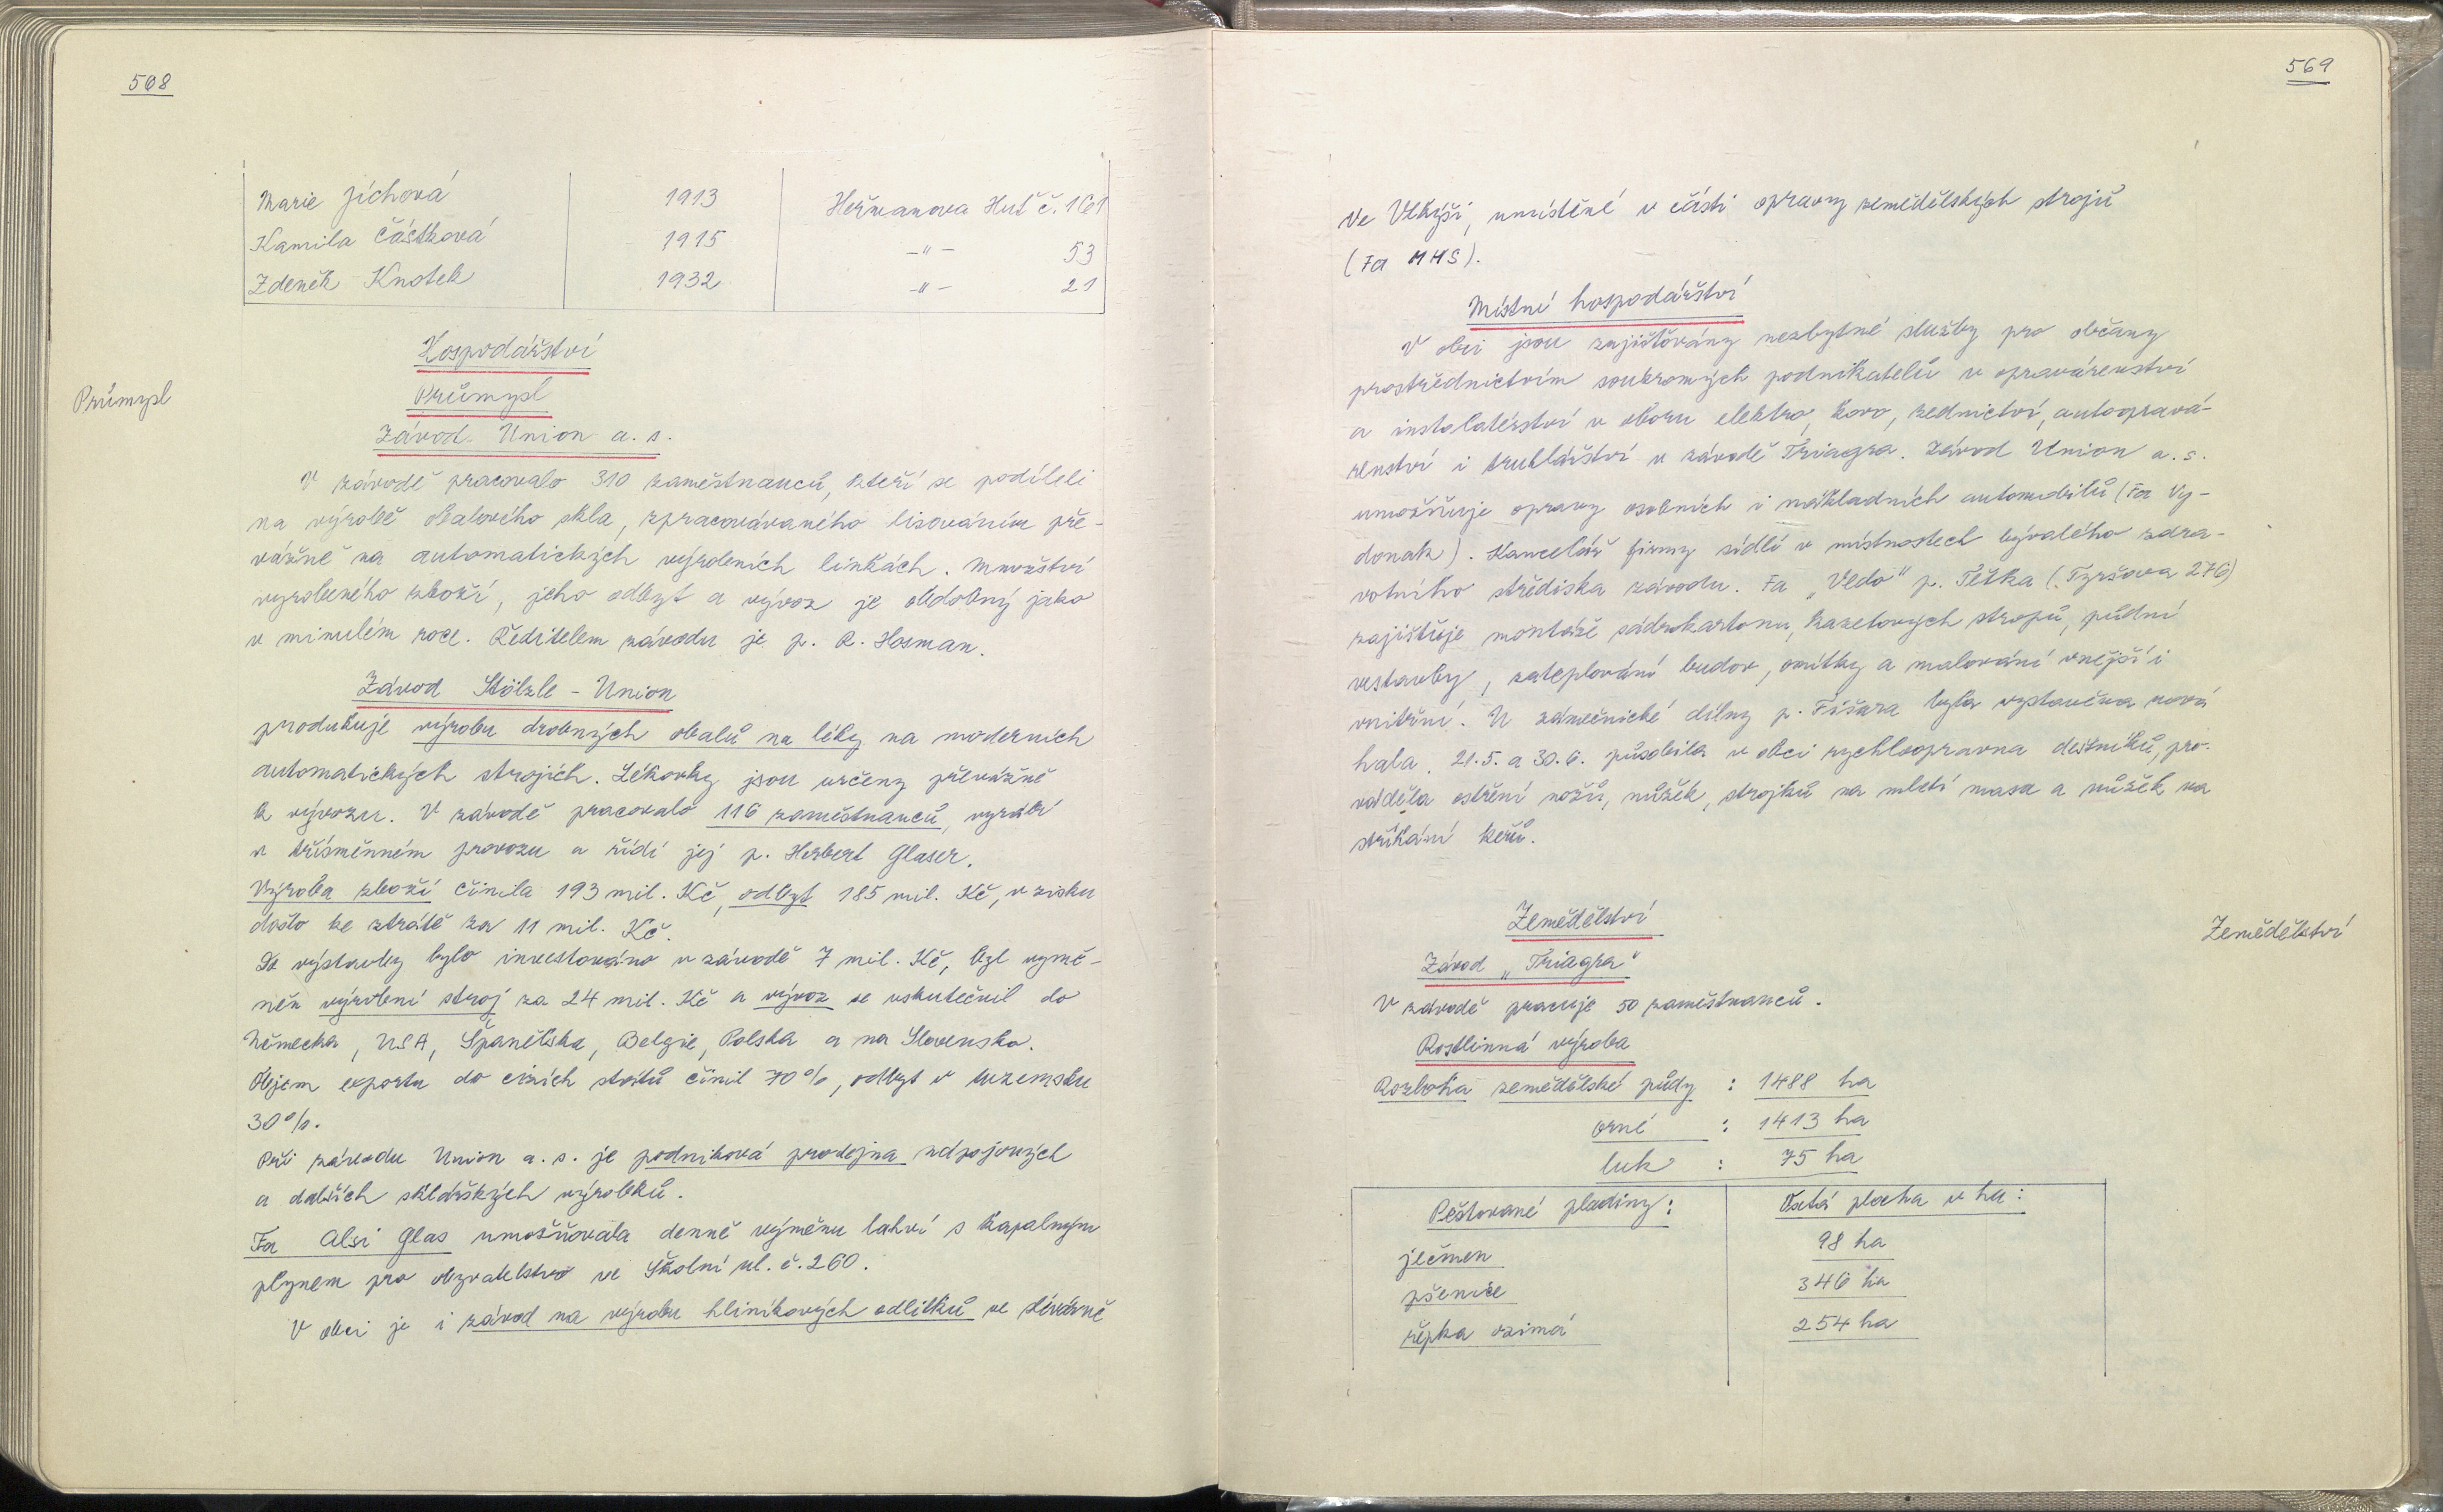 508
Marie Jíchová 1913 Heřmanova Huť č. 161
Kamila Částková 1915 -"- 53
Zdeněk Knotek 1932 -"- 21
Hospodářství
Průmysl
Průmysl
Závod Union a. s.
V závodě pracovalo 310 zaměstnanců, kteří se podíleli
na výrobě obalového skla, zpracovávaného lisováním pře-
vážně na automatických výrobních linkách. Množství
vyrobeného zboží, jeho odbyt a vývoz je obdobný jako
v minulém roce. Ředitelem závodu je p. R. Hosman.
Závod Stölzle - Union
produkuje výrobu drobných obalů na léky na moderních
automatických strojích. Lékovky jsou určeny převážně
k vývozu. V závodě pracovalo 116 zaměstnanců, vyrábí
v třísměnném provozu a řídí jej p. Herbert Glaser.
Výroba zboží činila 193 mil. Kč, odbyt 185 mil. Kč, v zisku
došlo ke ztrátě za 11 mil. Kč.
Do výstavby bylo investováno v závodě 7 mil. Kč, byl vymě-
něn výrobní stroj za 24 mil. Kč a vývoz se uskutečnil do
Německa, USA, Španělska, Belgie, Polska a na Slovensko.
Objem exportu do cizích států činil 70%, odbyt v tuzemsku
30%.
Při závodu Union a. s. je podniková prodejna nápojových
a dalších sklářských výrobků.
Fa Alsi Glas umožňovala denně výměnu lahví s kapalným
plynem pro obyvatelstvo ve Školní ul. č. 260.
V obci je i závod na výrobu hliníkových odlitků ve slévárně
569
Ve Vlkýši, umístěné v části opravy zemědělských strojů
(Fa MHS).
Místní hospodářství
V obci jsou zajišťovány nezbytné služby pro občany
prostřednictvím soukromých podnikatelů v opravárenství
a instalatérství v oboru elektro, kovo, zednictví, autoopravá-
renství i truhlářství v závodě Triagra. Závod Union a. s.
umožňuje opravy osobních i nákladních automobilů (Fa Vy-
donak). Kancelář firmy sídlí v místnostech bývalého zdra-
votního střediska závodu. Fa „Vedo" p. Tětka (Tyršova 276)
zajišťuje montáže sádrokartonu, kazetových stropů, půdní
vestavby, zateplování budov, omítky a malování vnější i
vnitřní. U zámečnické dílny p. Fišara byla vystavěna nová
hala. 21.5. a 30.6. působila v obci rychloopravna deštníků, pro-
váděla ostření nožů, nůžek, strojků na mletí masa a nůžek na
stříkání keřů.
Zemědělství
Zemědělství
Závod „Triagra"
V závodě pracuje 50 zaměstnanců.
Rostlinná výroba
Rozloha zemědělské půdy : 1488 ha
orné : 1413 ha
luk : 75 ha
Pěstované plodiny: Osetá plocha v ha:
ječmen 98 ha
pšenice 346 ha
řepka ozimá 254 ha